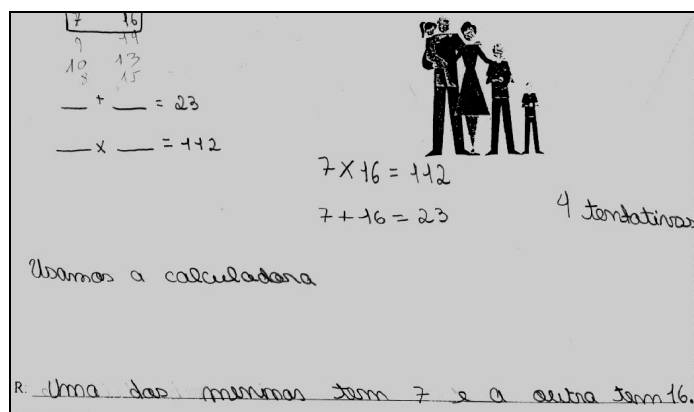 7 16
9 14
10 13
8 15
__ + __ = 23
__ x __ = 112
7 X 16 = 112
7 + 16 = 23
4 tentativas
Usamos a calculadora
R: Uma das meninas tem 7 e a outra tem 16.